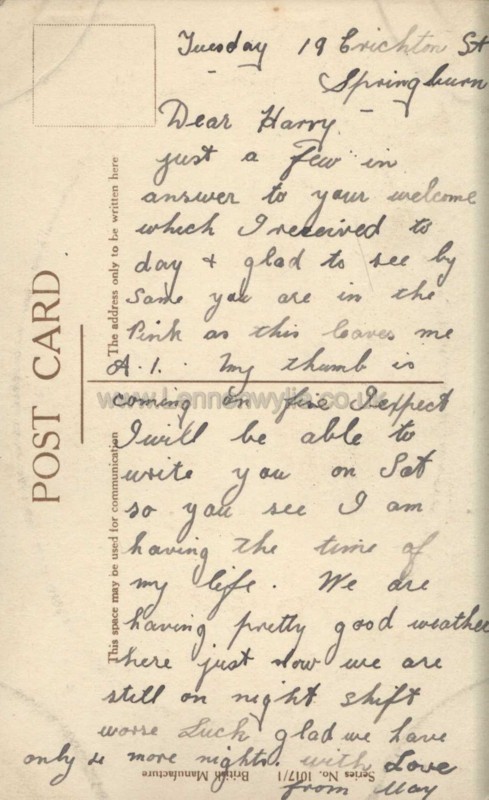 Tuesday 19 Crichton St
Springburn
Dear Harry
just a few in
answer to your welcome
which I received to
day & glad to see by
same you are in the
Pink as this leaves me
A.1. My thumb is
coming on fine I expect
I will be able to
write you on Sat
so you see I am
having the time of
my life. We are
having pretty good weather
here just now we are
still on night shift
worse Luck glad we have
only 4 more nights. with Love
from May
POST CARD
The address only to be written here
This space may be used for communication
British Manufacture
Series No. 1017/1
www.Lennoxwylie.co.uk